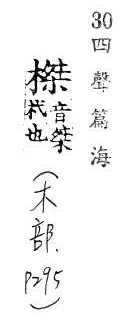 30 四聲篇海
榤 音桀
杙也
(木部. P295)